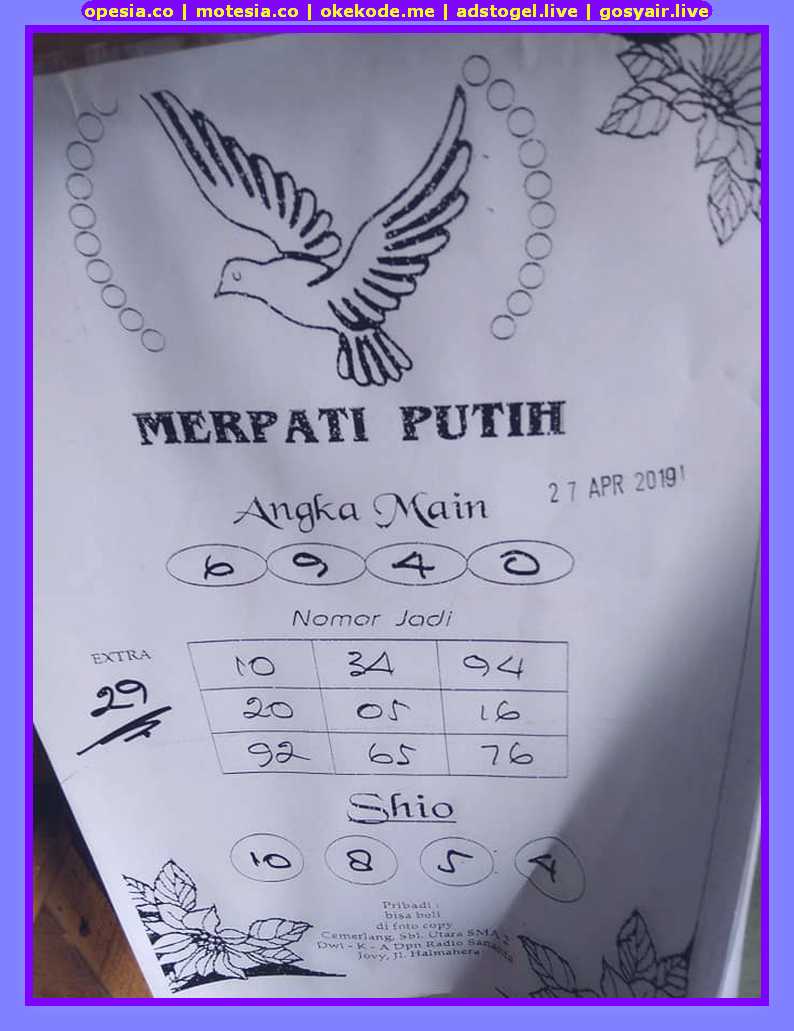 opesia.co | motesia.co | okekode.me | adstogel.live | gosyair.live
MERPATI PUTIH
27 APR 2019
Angka Main
6 9 4 0
Nomor Jadi
EXTRA
29
10 34 94
20 05 16
92 65 76
Shio
10 8 5 4
Pribadi :
bisa beli
di foto copy
Cemerlang, Sbl. Utara SMA 2
Dwi - K - A Dpn Radio
Jovy, Jl. Halmahera